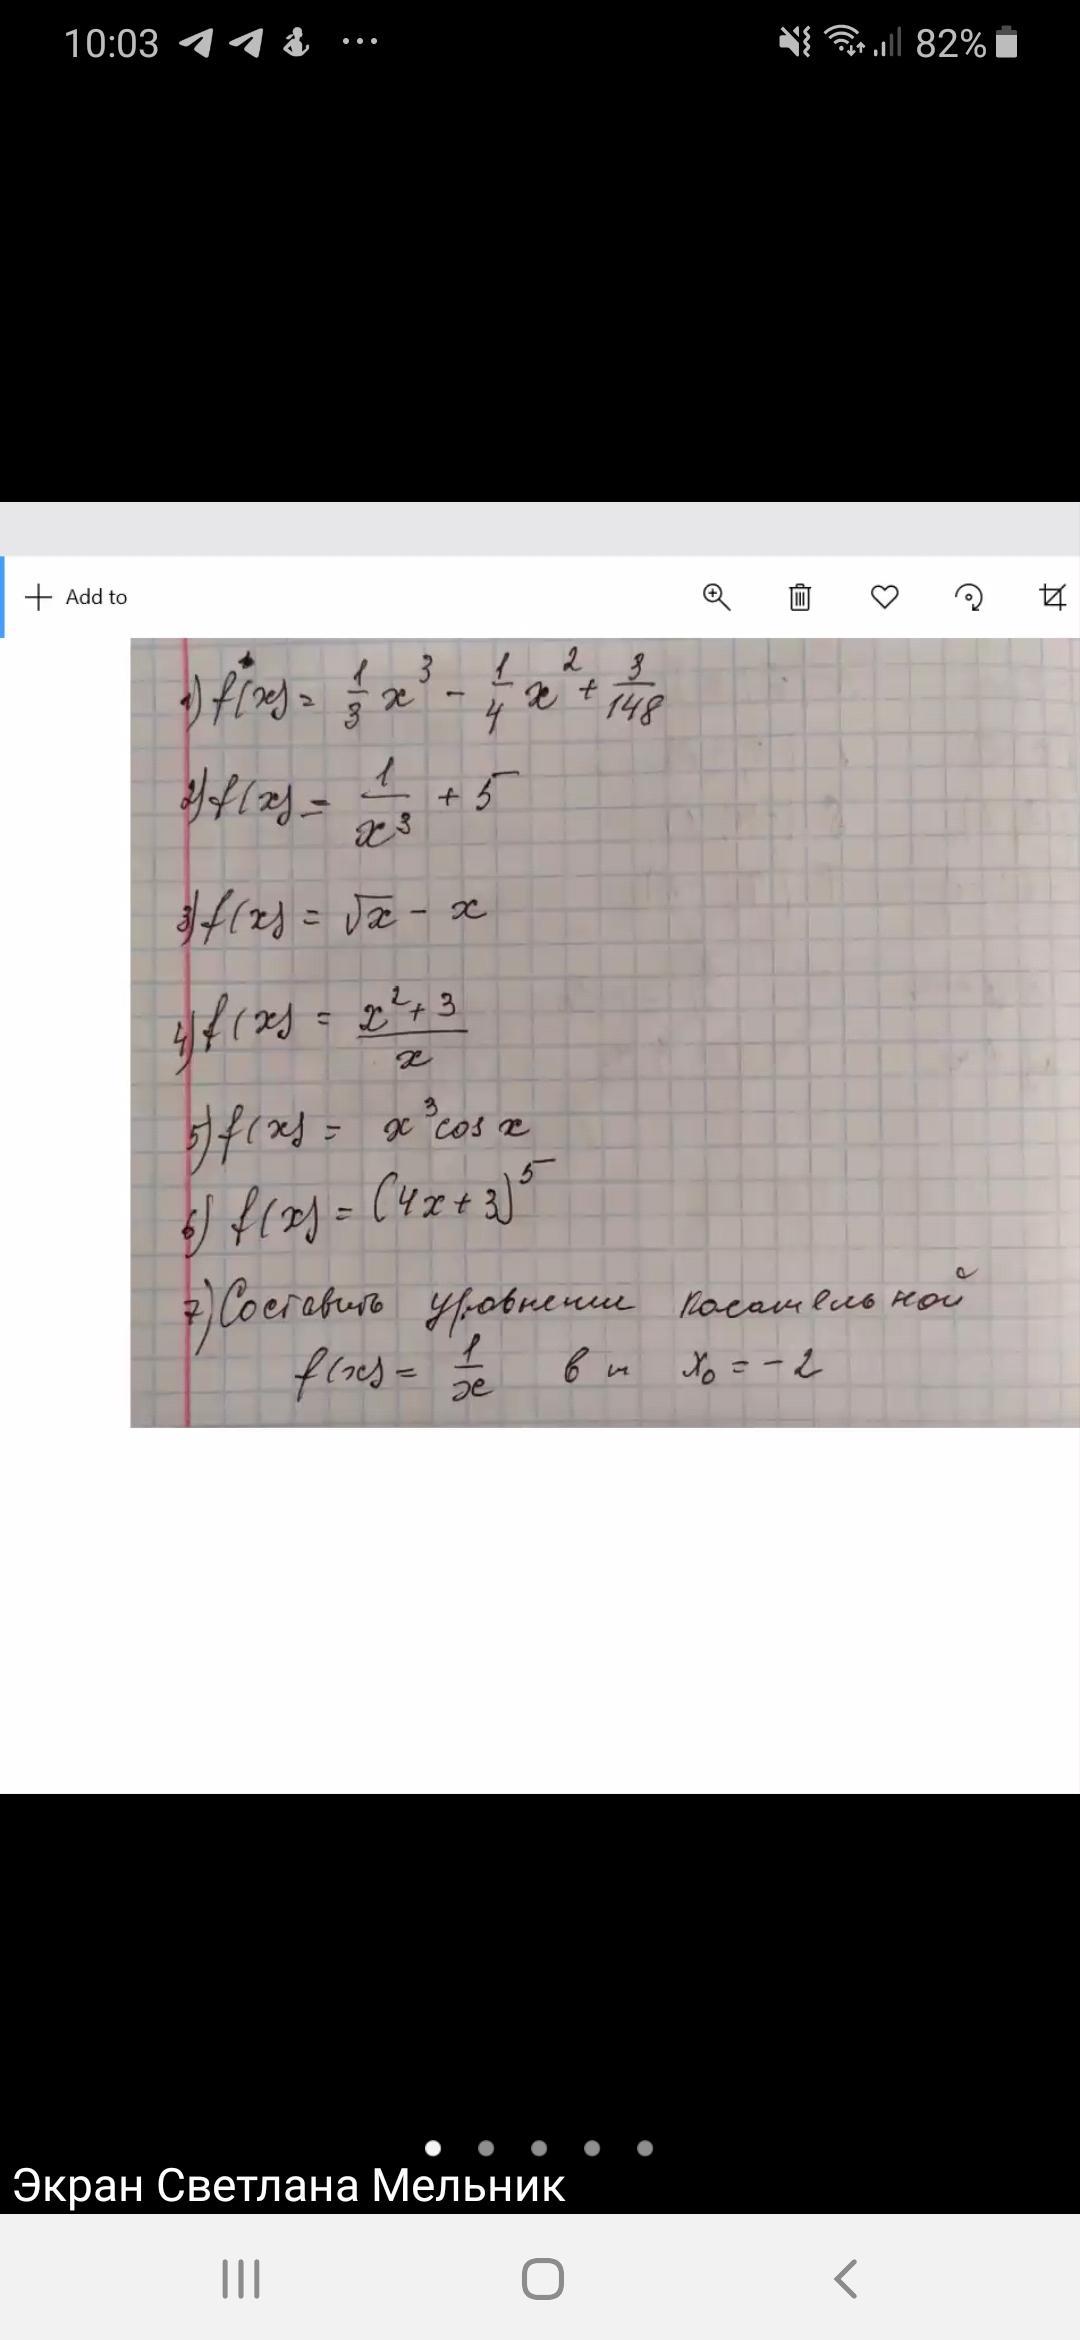 10:03 ... 82%
+ Add to
1) f(x) = 1/3 x³ - 1/4 x² + 3/148
2) f(x) = 1/x³ + 5
3) f(x) = √x - x
4) f(x) = (x² + 3)/x
5) f(x) = x³ cos x
6) f(x) = (4x + 3)⁵
7) Составить уровнении касательной
f(x) = 1/x в и x₀ = -2
Экран Светлана Мельник